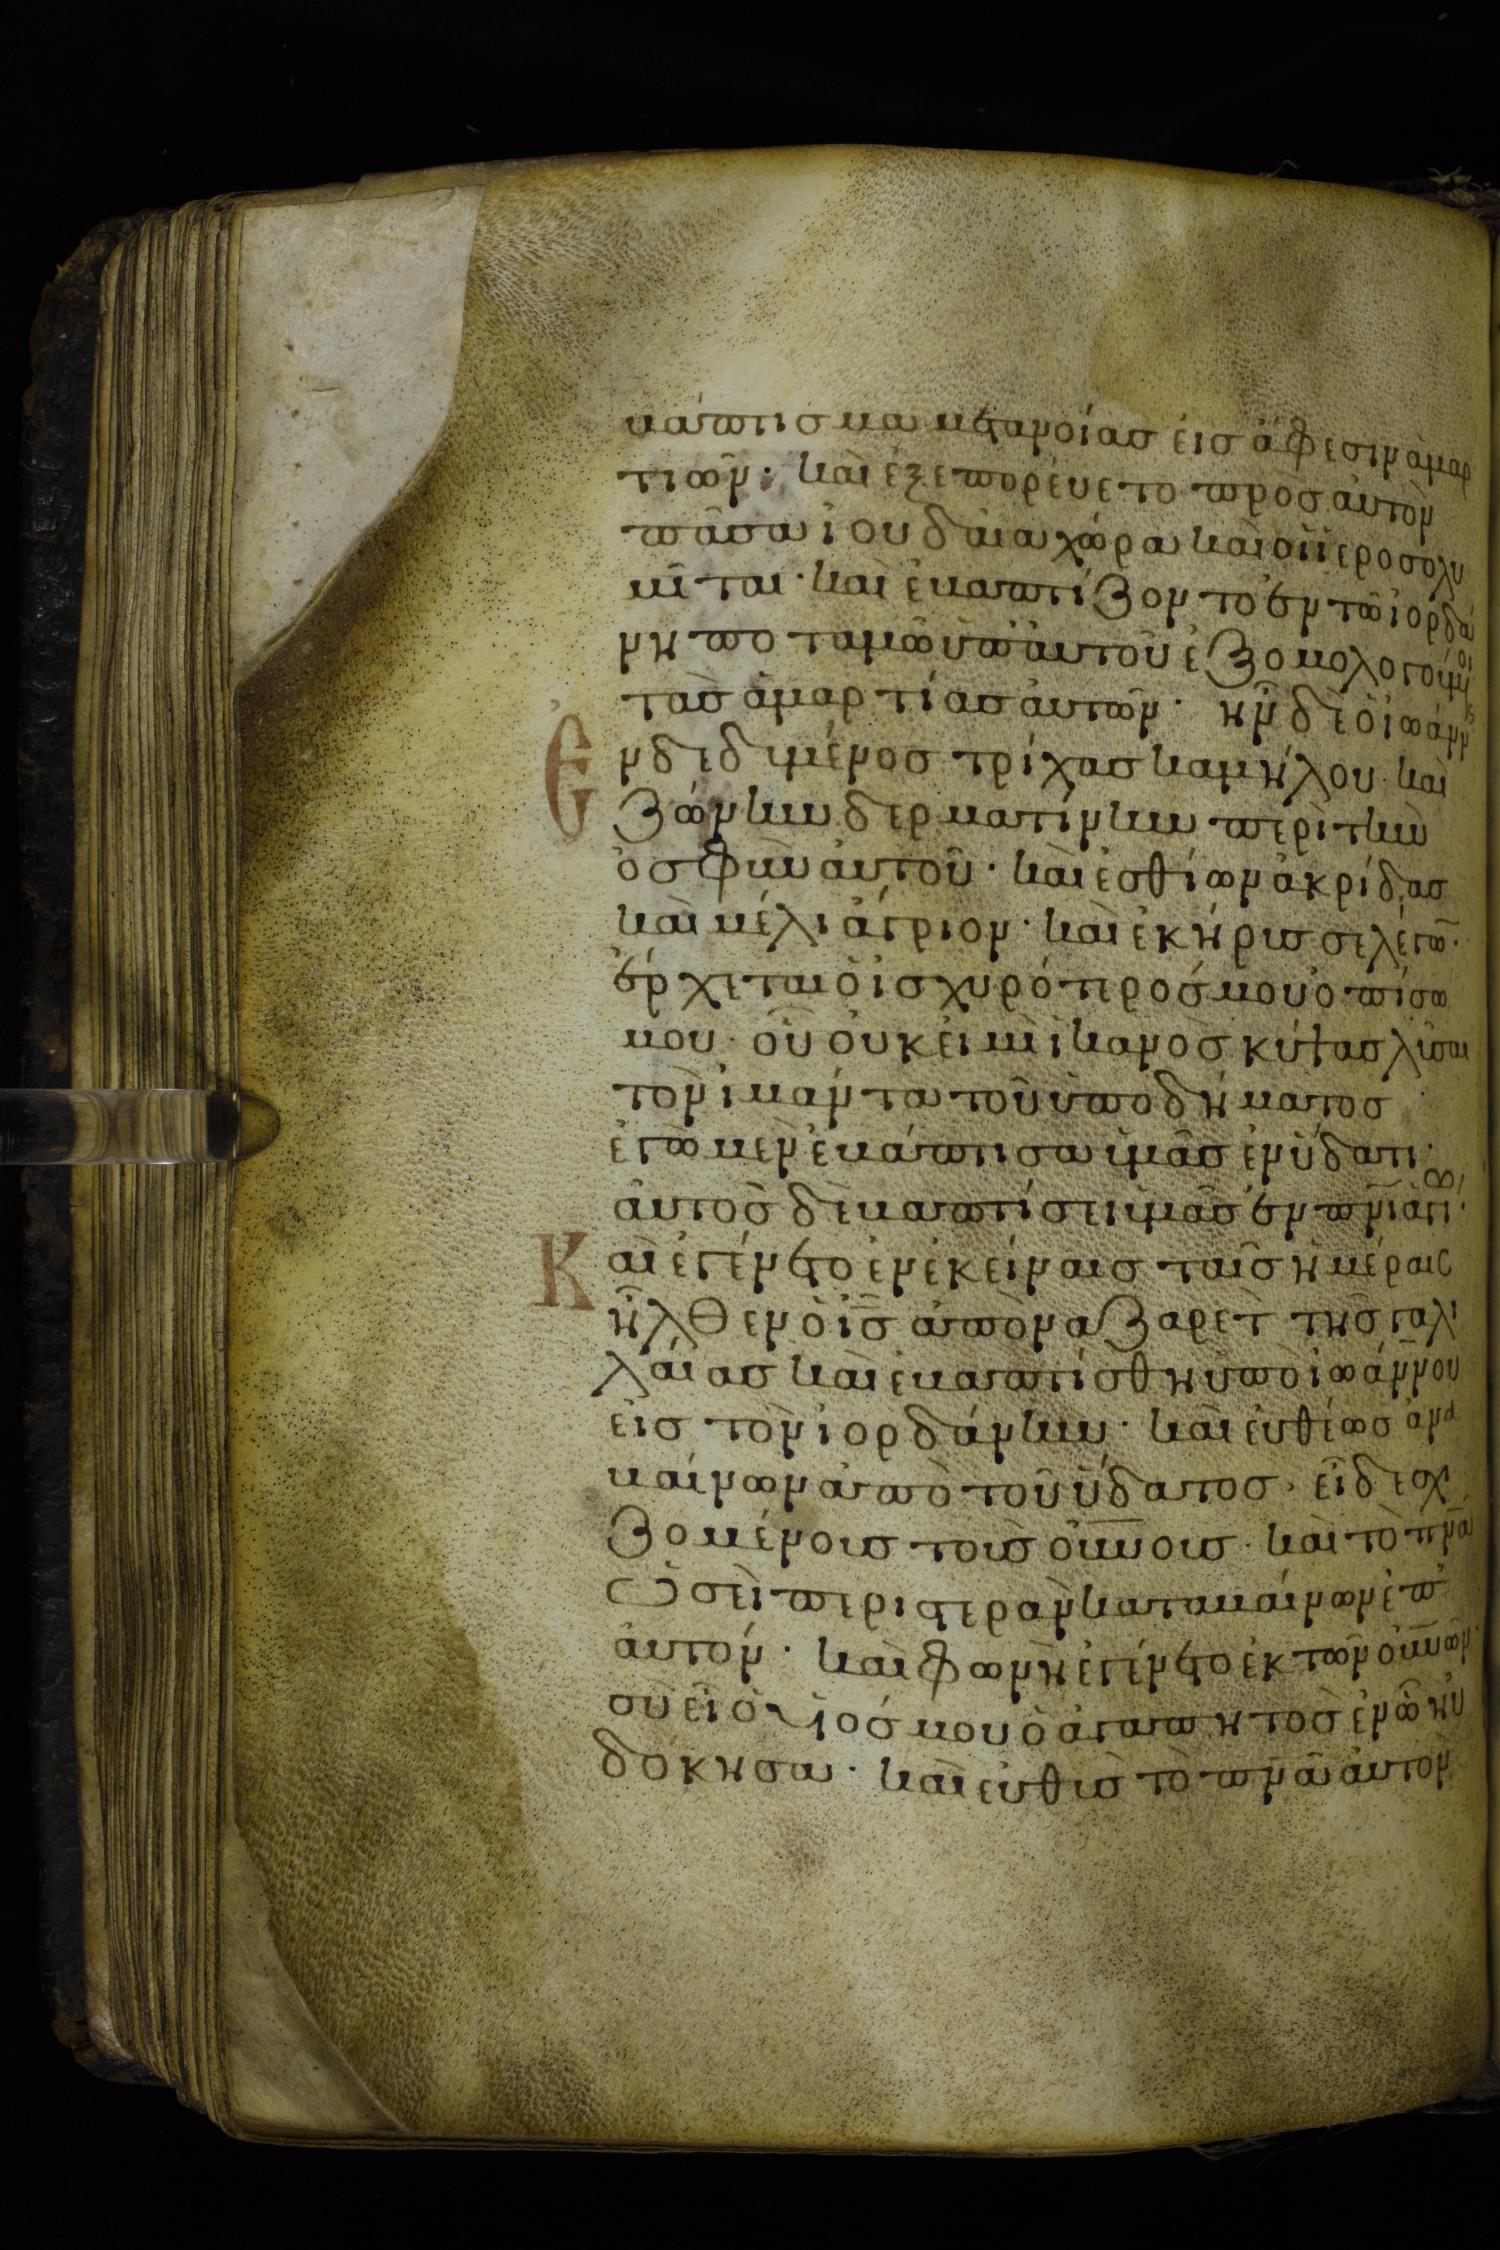 βάπτισμα μετανοίας εἰς ἄφεσιν ἁμαρ
τιῶν· καὶ ἐξεπορέυετο πρὸς ἀυτὸν
πᾶσα ἰουδάια χώρα καὶ οἱ ἱεροσολυ
μῖται· καὶ ἐβαπτίζοντο ἐν τῶ ἰορδά
νη ποταμῶ ὑπ' ἀυτοῦ ἐξομολογούμενοι
τὰς ἁμαρτίας ἀυτῶν· ἦν δὲ ὁ ἰωάννης
Ἐνδεδυμένος τρίχας καμήλου· καὶ
ζώνην δερματίνην περὶ τὴν
ὀσφὴν ἀυτοῦ· καὶ ἐσθίων ἀκρίδας
καὶ μέλι ἄγριον· καὶ ἐκήρυσσε λέγων·
ἔρχεται ὁ ἰσχυρότερός μου ὀπίσω
μου· οὗ οὐκ εἰμὶ ἱκανὸς κύψας λῦσαι
τὸν ἱμάντα τοῦ ὑποδήματος
ἐγὼ μὲν ἐβάπτισα ὑμᾶς ἐν ὕδατι·
ἀυτὸς δὲ βαπτίσει ὑμᾶς ἐν πνι ἁγίω·
Καὶ ἐγένετο ἐν ἐκείναις ταῖς ἡμέραις
ἦλθεν ὁ ις ἀπὸ ναζαρὲτ τῆς γαλι
λάιας καὶ ἐβαπτίσθη ὑπὸ ἰωάννου
εἰς τὸν ἰορδάνην· καὶ ἐυθέως ἀνα
βαίνων ἀπὸ τοῦ ὕδατος, εἶδε σχι
ζομένους τοὺς ουνους· καὶ τὸ πνα
ὡσεὶ περιστερὰν καταβαίνων ἐπ'
ἀυτόν· καὶ φωνὴ ἐγένετο ἐκ τῶν ουνων·
σὺ εἶ ὁ υἱός μου ὁ ἀγαπητὸς ἐν ὧ ηὐ
δόκησα· καὶ ἐυθὺς τὸ πνα ἀυτὸν